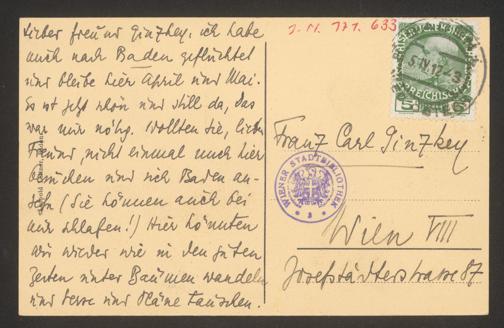 J. N. 171.633
Lieber Freund Ginzkey, ich habe
mich nach Baden geflüchtet
und bleibe hier April und Mai.
Es ist jetzt schön und still da, das
war mir nötig. Wollten Sie, lieber
Freund, nicht einmal mich hier
besuchen und sich Baden an-
sehn (Sie können auch bei
mir schlafen!) Hier könnten
wir wieder wie in den guten
Zeiten unter Bäumen wandeln
und Verse und Pläne tauschen.
5
WIEN
WIENER STADTBIBLIOTHEK
Franz Carl Ginzkey
Wien VIII
Josefstädterstrasse 87